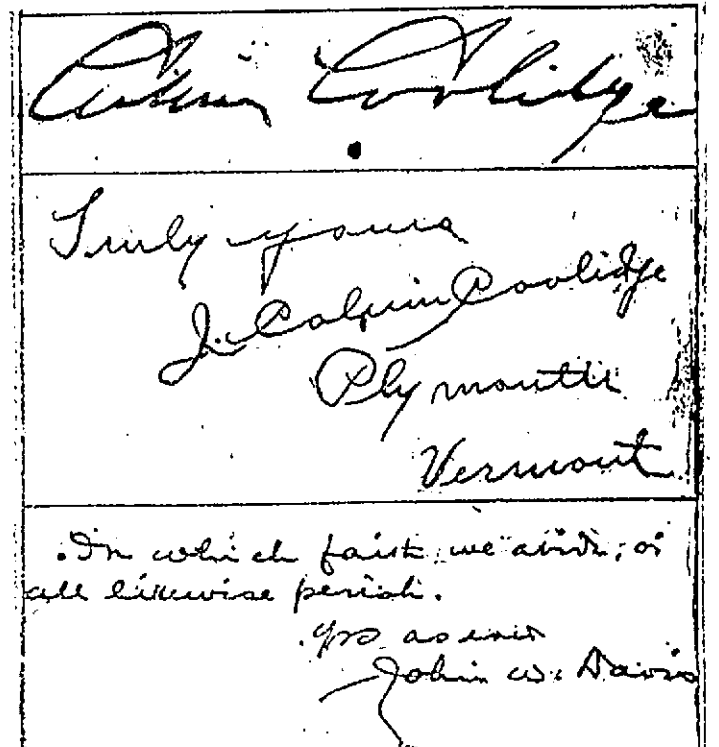 Calvin Coolidge
Truly yours
J. Calvin Coolidge
Plymouth
Vermont
In which faith we abide, or
all likewise perish.
Yrs as ever
John W. Davis